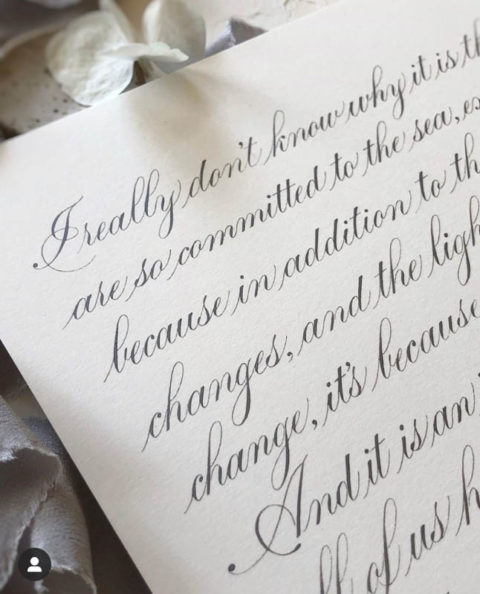 I really don't know why it is th
are so committed to the sea, ex
because in addition to th
changes, and the ligh
change, it's because
And it is an
ll of us h